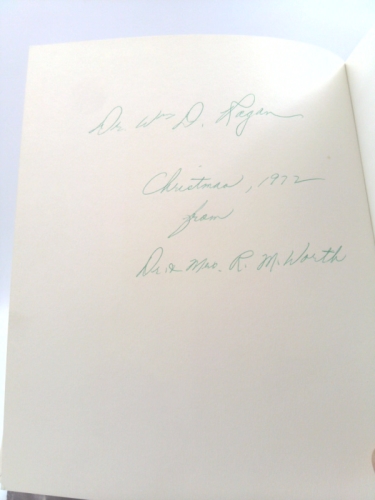 Dr. Wm D. Ragan
Christmas, 1972
from
Dr. & Mrs. R. M. Worth